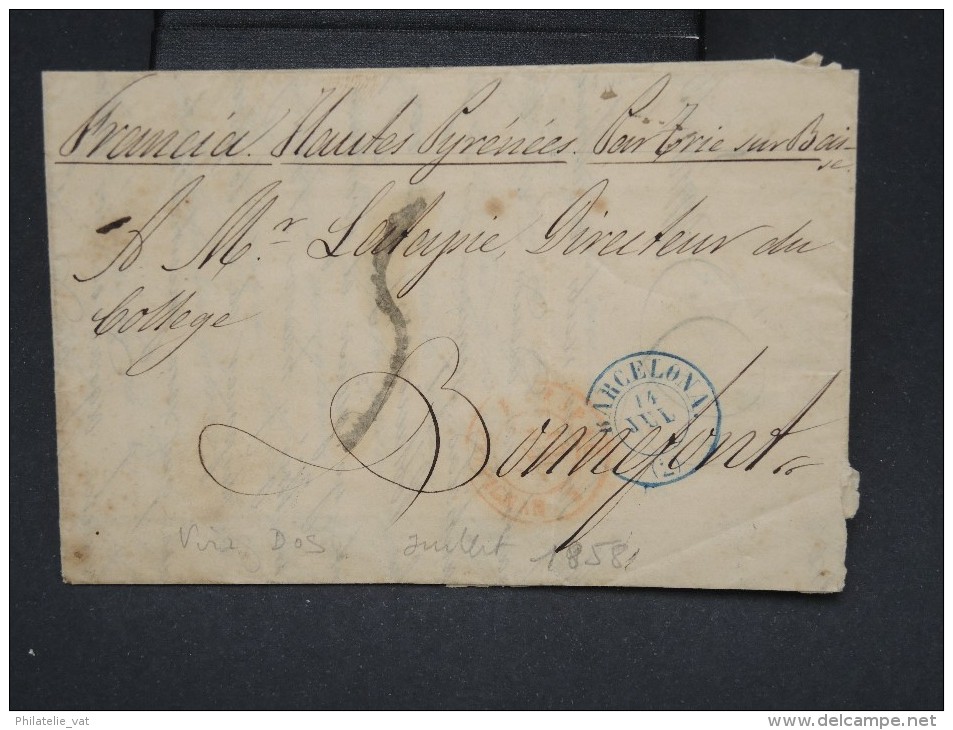 Francia. Hautes Pyrénées. Par Trie sur Bai-
se.
A Mr. Lateyrie, Directeur du
College
Bonnefont
BARCELONA
14
JUL
(2)
Dos Juillet 1858
Philatelie_vat
www.delcampe.net